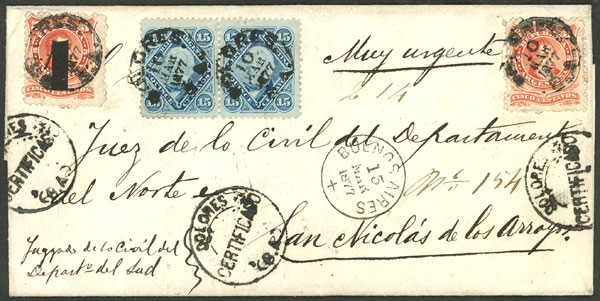 Muy urgente
Juez de lo Civil del Departamento
del Norte
San Nicolás de los Arroyos
Juzgado de lo Civil del
Departo. del Sud
No. 154
15 15
15 15
CINCO CENTAVOS
DOLORES
10
MAR
1877
BUENOS AIRES
15
MAR
1877
DOLORES
CERTIFICADO
(B.A.)
DOLORES
CERTIFICADO
(B.A.)
DOLORES
CERTIFICADO